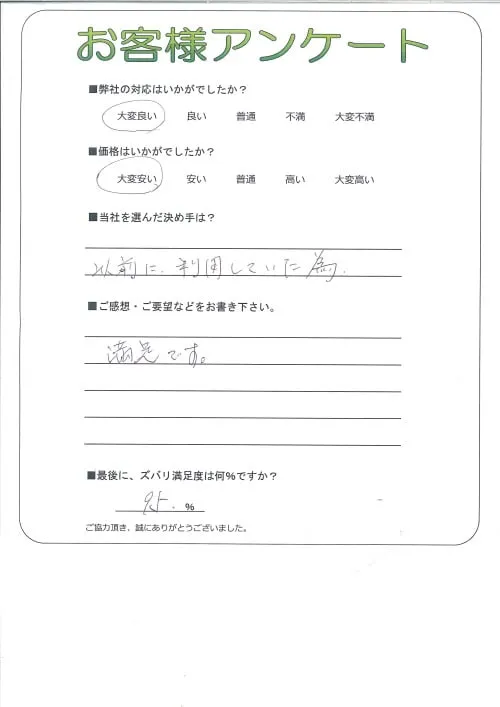 お客様アンケート
■弊社の対応はいかがでしたか？
大変良い 良い 普通 不満 大変不満
■価格はいかがでしたか？
大変安い 安い 普通 高い 大変高い
■当社を選んだ決め手は？
以前に、利用していた為、
■ご感想・ご要望などをお書き下さい。
満足です。
■最後に、ズバリ満足度は何％ですか？
95. ％
ご協力頂き、誠にありがとうございました。